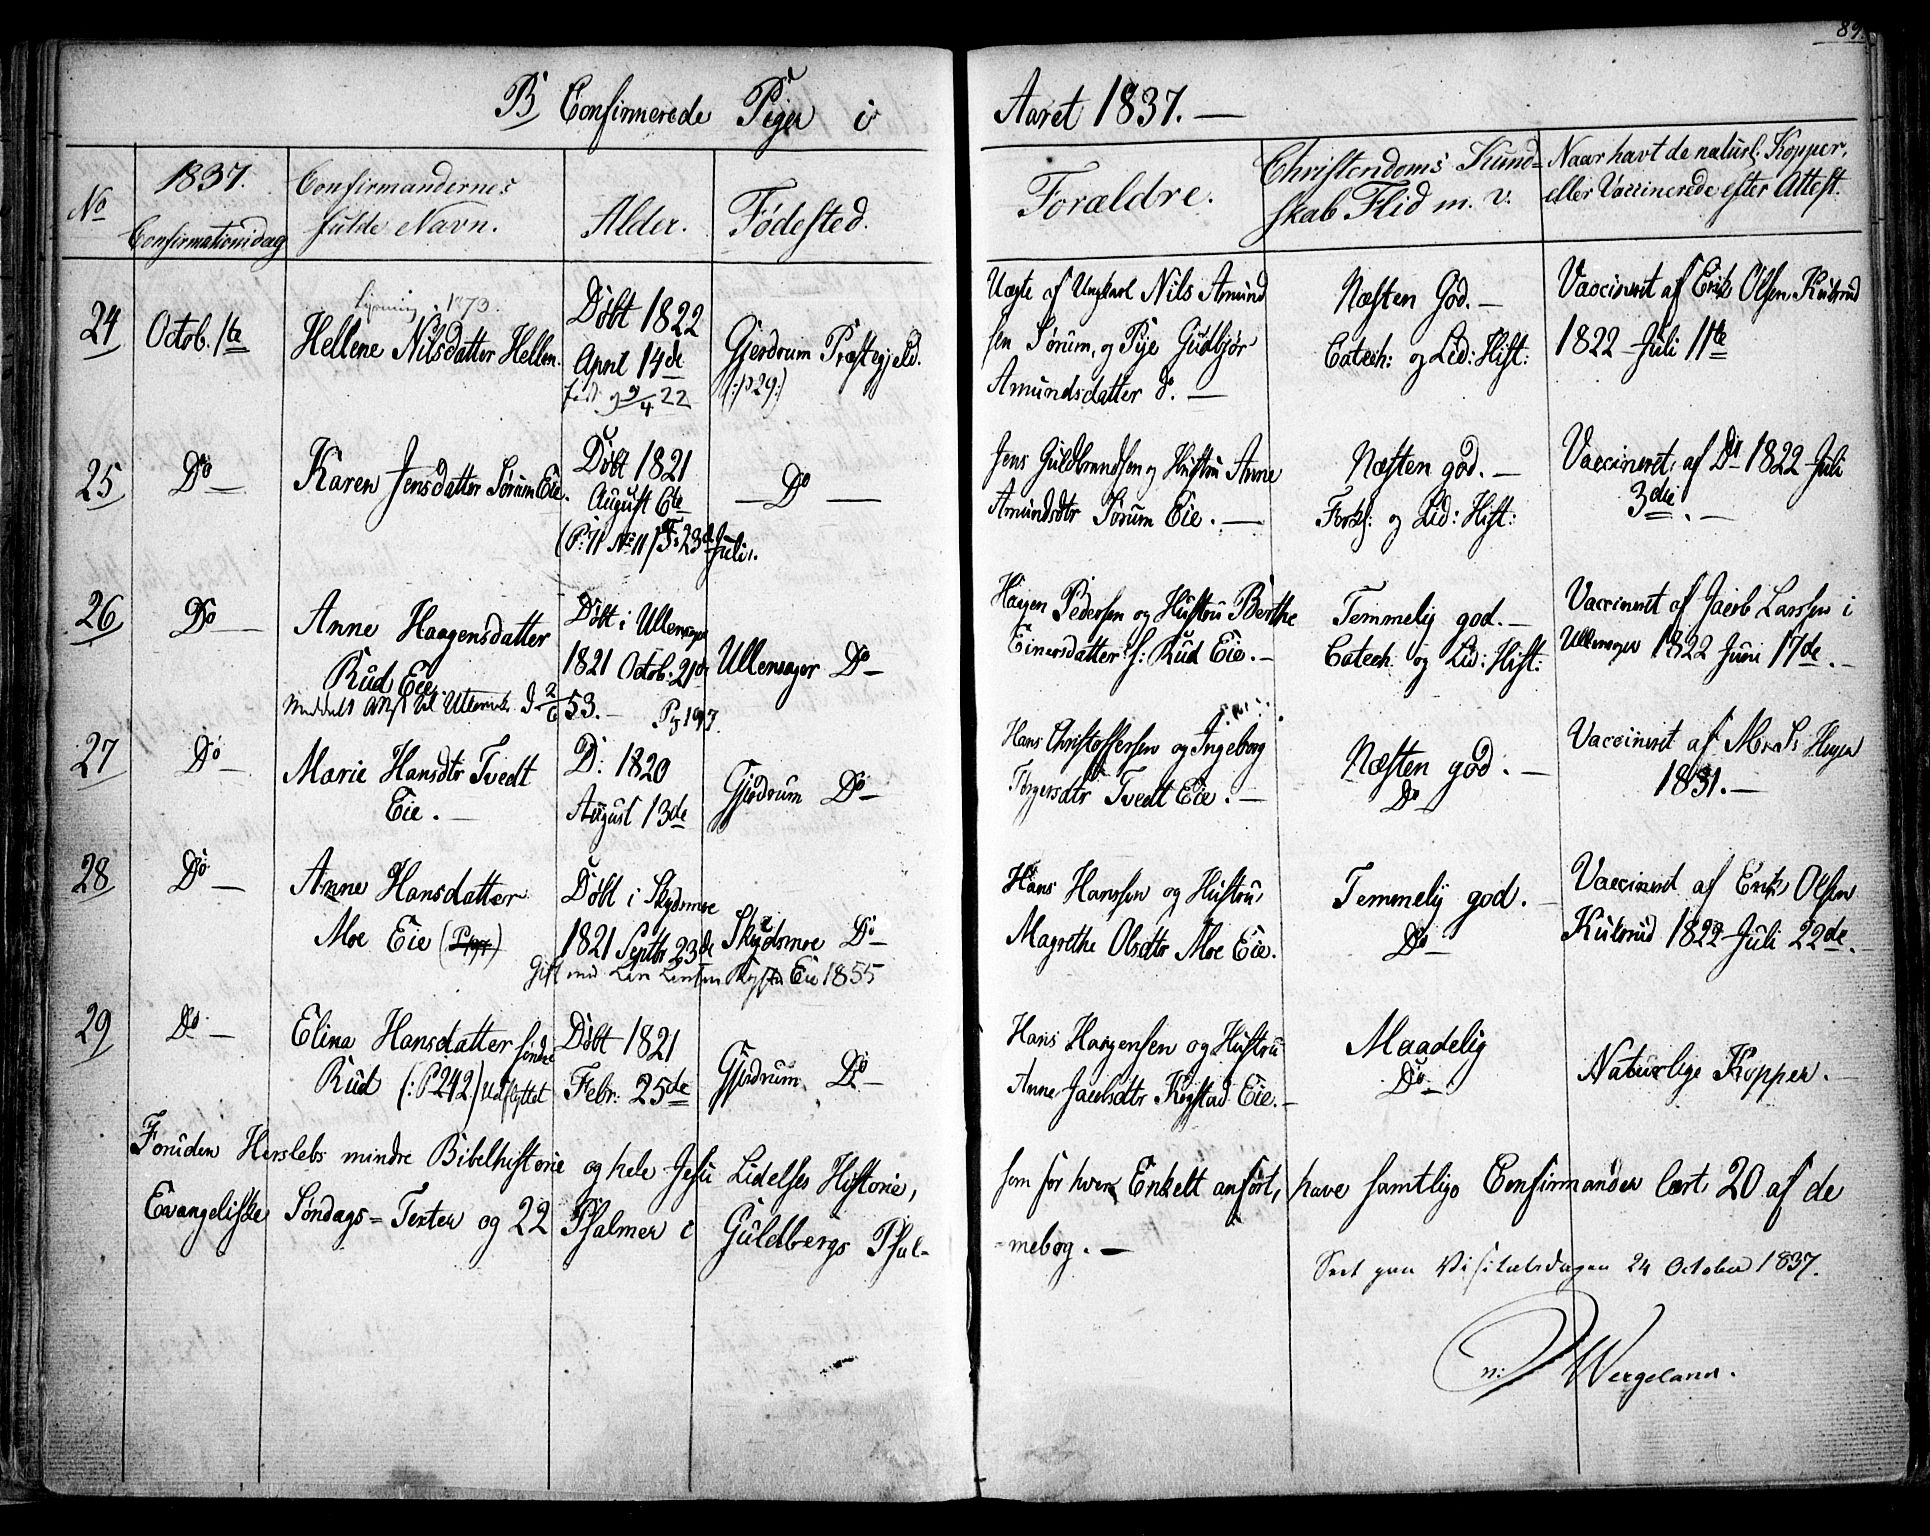 89.
B Confirmerede Piger i Aaret 1837. —
No
1837.
Confirmationsdag
Confirmandernes
fulde Navn.
Alder.
Fødested.
Forældre.
Christendoms Kund-
skab Flid m. v.
Naar havt de naturl. Kopper,
eller Vaccinerede efter Attest.
24
Octob. 1te
1873.
Hellene Nilsdatter Hellen.
Døbt 1822
April 14de
9/4 22
Gjerdrum Præstegjeld.
(:p29:)
Uægte af Ungkarl Nils Amund
sen Sørum, og Pije Gudbjør
Amundsdatter Do. —
Næsten God. —
Catech: og Lid: Hist:
Vaccineret af Erik Olsen Kulsrud
1822 Juli 11te
25
Do —
Karen Jensdatter Sørum Eie.
Døbt 1821
August 6te
(P: 11 No 11) F: 23de Juli.
— Do —
Jens Guldbrandsen og Hustru Anne
Amundsdtr Sørum Eie. —
Næsten god. —
Forkl: og Lid: Hist:
Vaccineret af Do 1822 Juli
3die. —
26
Do —
Anne Haagensdatter
Rud Eie.
Døbt i Ullensager
1821 Octob: 21de
Ullensager Do —
Meddelt Att. til Ullensak. d 2/6 53. —
Pg 197.
Haagen Pedersen og Hustru Berthe
Einersdatter f: Rud Eie. —
Temmelig god. —
Catech: og Lid: Hist:
Vaccineret af Jacob Larssen i
Ullensager 1822 Juni 17de. —
27
Do —
Marie Hansdtr Tvedt
Eie. —
D: 1820
August 13de
Gjerdrum Do —
Hans Christoffersen og Ingeborg
Torgersdtr Tvedt Eie. —
Næsten god. —
Do
Vaccineret af
1831. —
28
Do —
Anne Hansdatter
Moe Eie (P197)
Døbt i Skydsmoe
1821 Septbr 23de
Skydsmoe Do —
Gift med Eie 1855
Hans Hanssen og Hustru
Magrethe Olsdtr Moe Eie.
Temmelig god. —
Do —
Vaccineret af Erik Olsen
Kulsrud 1822 Juli 22de.
29
Do —
Elina Hansdatter søndre
Rud (: P 242) Udflyttet
Døbt 1821
Febr: 25de
Gjerdrum Do —
Hans Haagensen og Hustru
Anne Jacobsdtr Kogstad Eie. —
Maadelig
Do —
Naturlige Kopper. —
Foruden Herslebs mindre Bibelhistorie og hele Jesu Lidelses Historie, som for hver Enkelt anført, have samtlige Confirmander lært 20 af de
Evangeliske Søndags=Texter og 22 Psalmer i Guldbergs Psal-
-mebog. —
Seet paa Visitatsdagen 24 October 1837.
n: Wergeland.